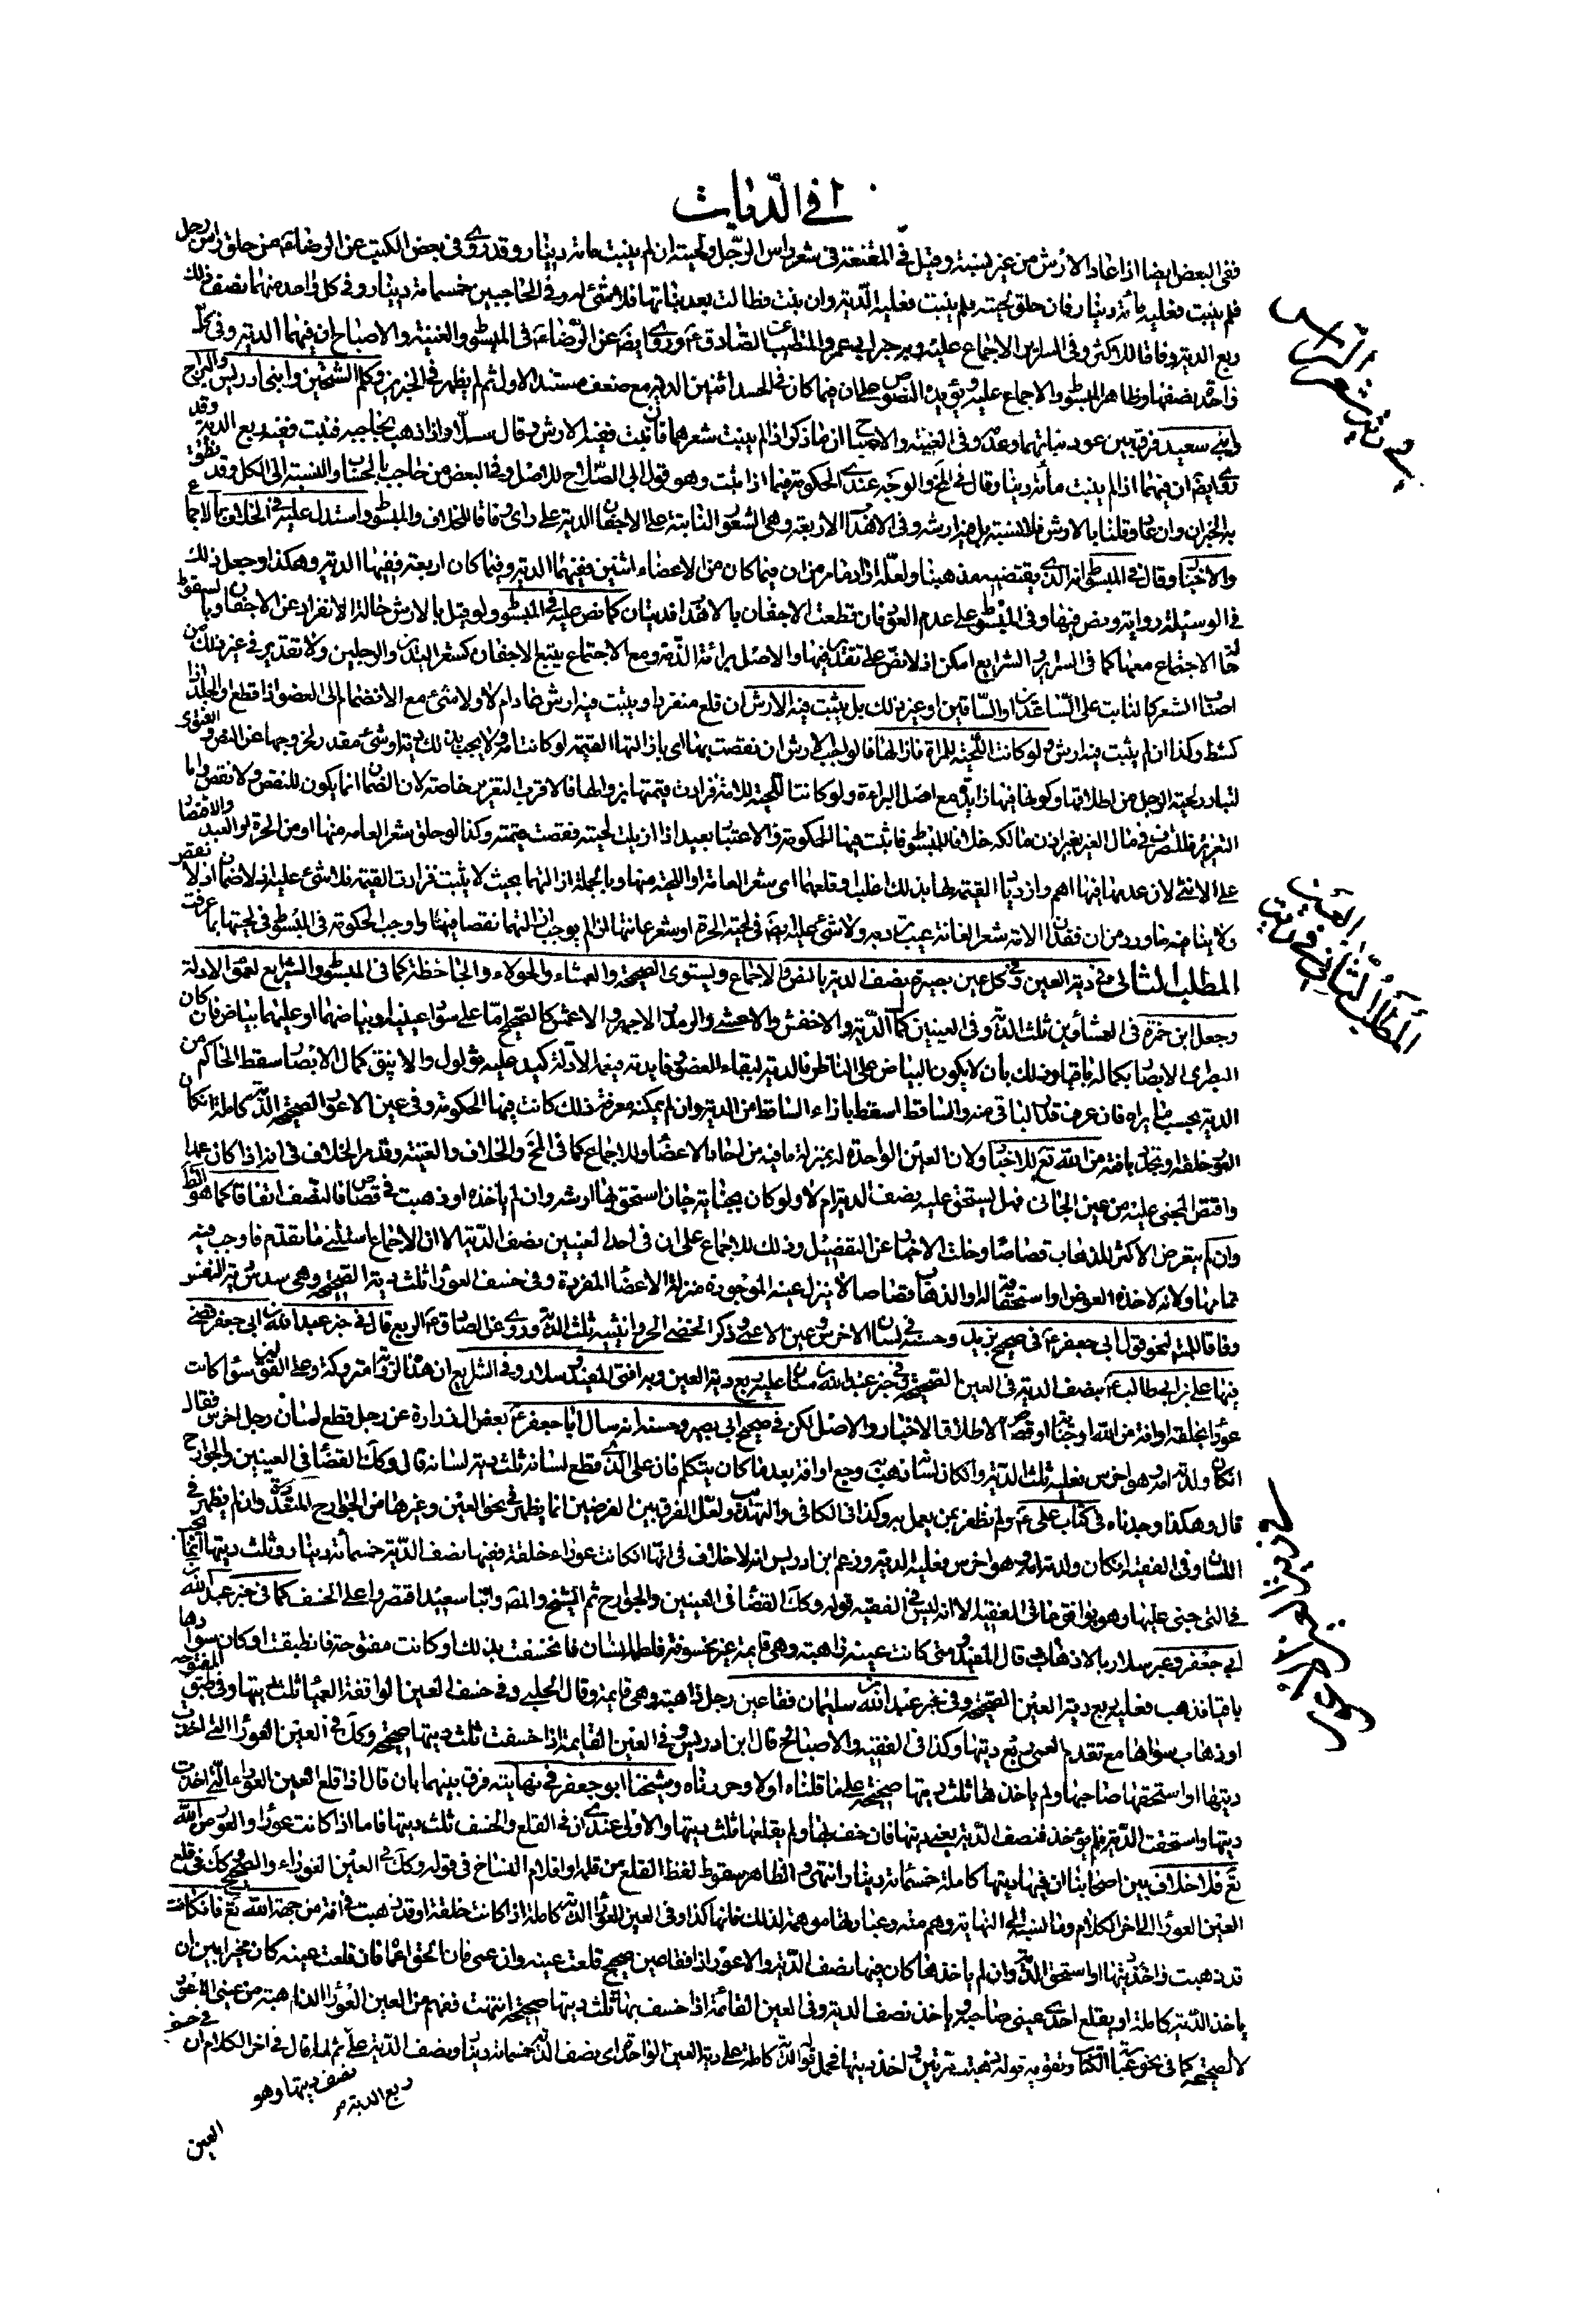 في الديات
ففي البعض ايضا اذا عاد الارش من غير نسبة وقيل في المقنعة في شعر راس الرجل ولحيته ان لم ينبت مائة دينار وقد روي في بعض الكتب عن الرضا من حلق راس رجل
فلم ينبت فعليه مائة دينار فان حلق لحيته فلم ينبت فعليه الدية وان نبت فطالت بعد نباتها فلا شئ له وفي الحاجبين خمسمائة دينار وفي كل واحد منهما نصف ذلك
ربع الدية وفاقا للاكثر وفي السرائر الاجماع عليه وبه خبر ابي عمرو المتطبب عن الصادق وروي ايضا عن الرضا في المبسوط والغنية والاصباح ان فيهما الدية وفي كل
واحدة نصفها وظاهر المبسوط الاجماع عليه ويؤيده النصوص على ان فيما كان في الجسد اثنين الدية مع ضعف مستند الاول ثم لم يظهر في الخبرين وكلام الشيخين وابني ادريس
وابني سعيد فرق بين عود نباتهما وعدمه وفي الغنية والاصباح ان ما ذكر اذا لم ينبت شعرهما فان نبت ففيه الارش وقال سلار واذا ذهب بحاجبه فنبت ففيه ربع الدية وقد
روي ايضا ان فيهما اذا لم ينبت مائة دينار وقال في المخ والوجه عندي الحكومة فيهما اذا نبت وهو قول ابي الصلاح للاصل وفي البعض من حاجب بالحساب والنسبة الى الكل وقد نطق
به الخبران وان عاد وقلنا بالارش فلا نسبة بل فيه ارشه وفي الاهداب الاربعة وهي الشعور النابتة على الاجفان الدية على راي وفاقا للخلاف والمبسوط واستدل عليه في الخلاف بالاجماع
والاخبار وقال في المبسوط انه الذي يقتضيه مذهبنا ولعله اراد ما مر من ان فيما كان من الاعضاء اثنين ففيهما الدية وفيما كان اربعة ففيها الدية وهكذا وجعل ذلك
في الوسيلة رواية ونص فيها وفي المبسوط على عدم العود فان قطعت الاجفان بالاهداب فديتان كما نص عليه في المبسوط ولو قيل بالارش حالة الانفراد عن الاجفان وبالسقوط
حال الاجتماع معها كما في السرائر والشرائع امكن اذ لا نص على تقدير فيها والاصل براءة الذمة ومع الاجتماع يتبع الاجفان كشعر اليدين والرجلين ولا تقدير في غير ذلك من
اصناف الشعر كالنابت على الساعدين او الساقين او غير ذلك بل يثبت فيه الارش ان قلع منفردا ويثبت فيه ارش ما دام لا ولا شئ مع الانضمام الى العضو اذا قطع او الجلد اذا
كشط وكذا ان لم يثبت فيه ارش ولو كانت اللحية للمراة فازالها فالواجب الارش ان نقصت بها اي بازالتها القيمة لو كانت امة ولا يجب بذلك دية او شئ مقدر لخروجها عن النص والفتوى
لتبادر لحية الرجل من اطلاقها وكونها فيها زايدة مع اصل البراءة ولو كانت اللحية للامة فزادت قيمتها بزوالها فالاقرب التعزير خاصة لان الضمان انما يكون للنقص ولا نقص واما
التعزير فللتصرف في مال الغير بغير اذن مالكه خلافا للمبسوط فاثبت فيها الحكومة والاعتبار بعبد اذا ازيلت لحيته فنقصت قيمته وكذا لو حلق شعر العانة منها او من الحرة او العبد والاقتصار
على الانثى لان عدمها فيها اهم وازدياد القيمة لها بذلك اغلب وقلعهما اي شعر العانة واللحية منها وبالجملة ازالتهما بحيث لا ينبت فزادت القيمة فلا شئ عليه لا ضمان اذ لا نقص
ولا ينافيه ما ورد من ان فقدان الامة شعر العانة عيب ترد به ولا شئ عليه ايضا في لحية الحرة او شعر عانتها ان لم يوجب ازالتهما نقصا فيها واوجب الحكومة في المبسوط في لحيتها بما عرفت
المطلب الثاني في دية العين وفي كل عين بصيرة نصف الدية بالنص والاجماع ويستوي الصحيحة والعمشاء والحولاء والجاحظة كما في المبسوط والشرايع لعموم الادلة
وجعل ابن حمزة في العمشاوين ثلث الدية وفي العينين كمال الدية والاخفش والاعشى والرمد والاجهر والاعمش كالصحيح اما على سواد عينيه او بياضهما او عليهما بياض فان كان
البصر اي الابصار بكماله باقيا وذلك بان لا يكون البياض على الناظر فالدية لبقاء العضو وفايدته فيعمه الادلة كيد عليها ثؤلول والا يبق كمال الابصار سقط الحاكم من
الدية بحسب ما يراه فان عرف قدر الباقي منه والساقط اسقط بازاء الساقط من الدية وان لم يمكنه معرفة ذلك كانت فيها الحكومة وفي عين الاعور الصحيحة الدية كاملة ان كان
العور خلقة وتجدد بافة من الله تع للاخبار ولان العين الواحدة له بمنزلة ما فيه من احاد الاعضاء وللاجماع كما في المخ والخلاف والغنية وقد مر الخلاف في انه اذا كان عمدا
واقتص المجني عليه من عين الجاني فهل يستحق عليه نصف الدية ام لا ولو كان بجناية جان استحق بها ارشه وان لم ياخذه او ذهبت في قصاص فالنصف اتفاقا كما هو الظاهر
وان لم يتعرض الاكثر للذهاب قصاصا وخلت الاخبار عن التفصيل وذلك للاجماع على ان في احد العينين نصف الدية الا ان الاجماع استثنى ما تقدم فاوجب فيه
تمامها ولانه لاخذه العوض او استحقاقه له والذهاب قصاصا لا ينزل عينه الموجودة منزلة الاعضاء المفردة وفي خسف العوراء ثلث دية الصحيحة وهي سدس دية النفس
وفاقا للمشهور لنحو قول ابي جعفر في صحيح بريد وحسنه في لسان الاخرس وعين الاعمى وذكر الخصي الحر وانثييه ثلث الدية وروي عن الصادق الربع قال في خبر عبد الله بن ابي جعفر قضى
فيها علي بن ابي طالب نصف الدية في العين الصحيحة وفي خبر عبد الله بن سليمان عليه ربع دية العين وبه افتى المفيد وسلار وفي الشرايع ان هذه الرواية متروكة وعلى القولين سواء كانت
عوراء بخلقة او افة من الله او جناية او قصاص لاطلاق الاخبار والاصل لكن في صحيح ابي بصير وحسنه انه سال ابا جعفر بعض ال زرارة عن رجل قطع لسان رجل اخرس فقال
ان كان ولدته امه وهو اخرس فعليه ثلث الدية وان كان لسانه ذهب به وجع او افة بعد ما كان يتكلم فان على الذي قطع لسانه ثلث دية لسانه قال وكذلك القضاء في العينين والجوارح
قال وهكذا وجدناه في كتاب علي ولم نظفر بمن يعمل به وكذا في الكافي والتهذيب ولعل الفرق بين الفرضين انما يظهر في نحو العين وغيرها من الجوارح المتعددة وان لم يظهر في
اللسان وفي الفقيه ان كان ولدته امه وهو اخرس فعليه الدية وزعم ابن ادريس انه لا خلاف في انها ان كانت عوراء خلقة ففيها نصف الدية خمسمائة دينار وثلث ديتها انما يجب
في التي جنى عليها وهو يوافق ما في الفقيه الا انه ليس في الفقيه قوله وكذلك القضاء في العينين والجوارح ثم الشيخ والمصنف وابنا سعيد اقتصروا على الخسف كما في خبر عبد الله
ابن ابي جعفر وعبر سلار بالاذهاب قال المفيد متى كانت عينه ذاهبة وهي قايمة غير مخسوفة فلطمها انسان فانخسفت بذلك او كانت مفتوحة فانطبقت او كان سوادها
باقيا فذهب فعليه ربع دية العين الصحيحة وفي خبر عبد الله بن سليمان فقا عين رجل ذاهبة وهي قايمة وقال الحلبي وفي خسف العين الواقفة العمياء ثلث ديتها وفي طبق المفتوحة
او ذهاب سوادها مع تقدم العمى ربع ديتها وكذا في الغنية والاصباح قال ابن ادريس وفي العين القايمة اذا خسفت ثلث ديتها صحيحة وكذلك في العين العوراء التي اخذت
ديتها او استحقها صاحبها ولم ياخذها ثلث ديتها صحيحة على ما قلناه اولا وحررناه وشيخنا ابو جعفر في نهايته فرق بينهما بان قال اذا قلع العين العوراء التي اخذت
ديتها واستحقت الدية فلم يؤخذ فنصف الدية يعني ديتها فان خسف بها ولم يقلعها ثلث ديتها والاولى عندي ان في القلع والخسف ثلث ديتها فاما اذا كانت عوراء والعور من الله
تع فلا خلاف بين اصحابنا ان فيها ديتها كاملة خمسمائة دينار انتهى والظاهر سقوط لفظ القلع من قلمه او اقلام النساخ في قوله وكذلك في العين العوراء والصحيح وكذلك في قلع
العين العوراء الى اخر الكلام وما نسبه الى النهاية وهم منه وعبارتها موهمة لذلك فانها كذا وفي العين العوراء الدية كاملة اذا كانت خلقة او قد ذهبت في افة من جهة الله تع فان كانت
قد ذهبت واخذ ديتها او استحق الدية وان لم ياخذها كان فيها نصف الدية والاعور اذا فقا عين صحيح قلعت عينه وان عمي فان الحق اعماه فان قلعت عينه كان مخيرا بين ان
ياخذ الدية كاملة او يقلع احدى عيني صاحبه وياخذ نصف الدية وفي العين القائمة اذا خسف بها ثلث ديتها صحيحة انتهت ففهم من العين العوراء الذاهبة من عيني الاعور
لا الصحيحة كما في نحو عبارة الكتاب
نصف ديتها وهو
ربع الدية
العين
المطلب الثاني في دية العين